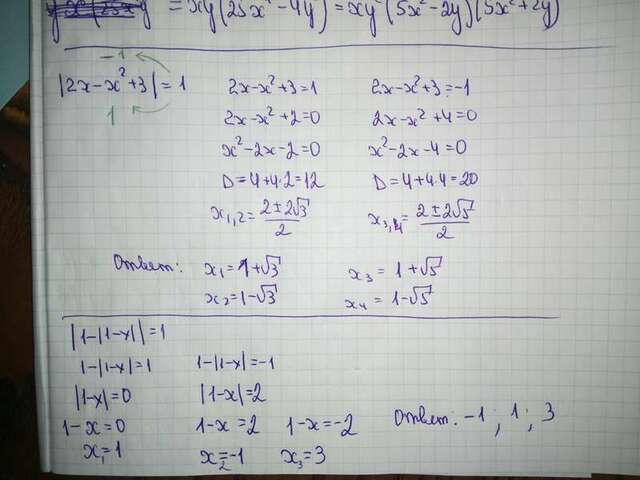 = xy(25x² - 4y) = xy(5x² - 2y)(5x² + 2y)
-1
|2x - x² + 3| = 1
1
2x - x² + 3 = 1
2x - x² + 2 = 0
x² - 2x - 2 = 0
D = 4 + 4·2 = 12
x₁,₂ = (2 ± 2√3)/2
2x - x² + 3 = -1
2x - x² + 4 = 0
x² - 2x - 4 = 0
D = 4 + 4·4 = 20
x₃,₄ = (2 ± 2√5)/2
Ответ: x₁ = 1 + √3 x₃ = 1 + √5
x₂ = 1 - √3 x₄ = 1 - √5
|1 - |1 - x|| = 1
1 - |1 - x| = 1 1 - |1 - x| = -1
|1 - x| = 0 |1 - x| = 2
1 - x = 0 1 - x = 2 1 - x = -2
x₁ = 1 x₂ = -1 x₃ = 3
Ответ: -1 ; 1 ; 3